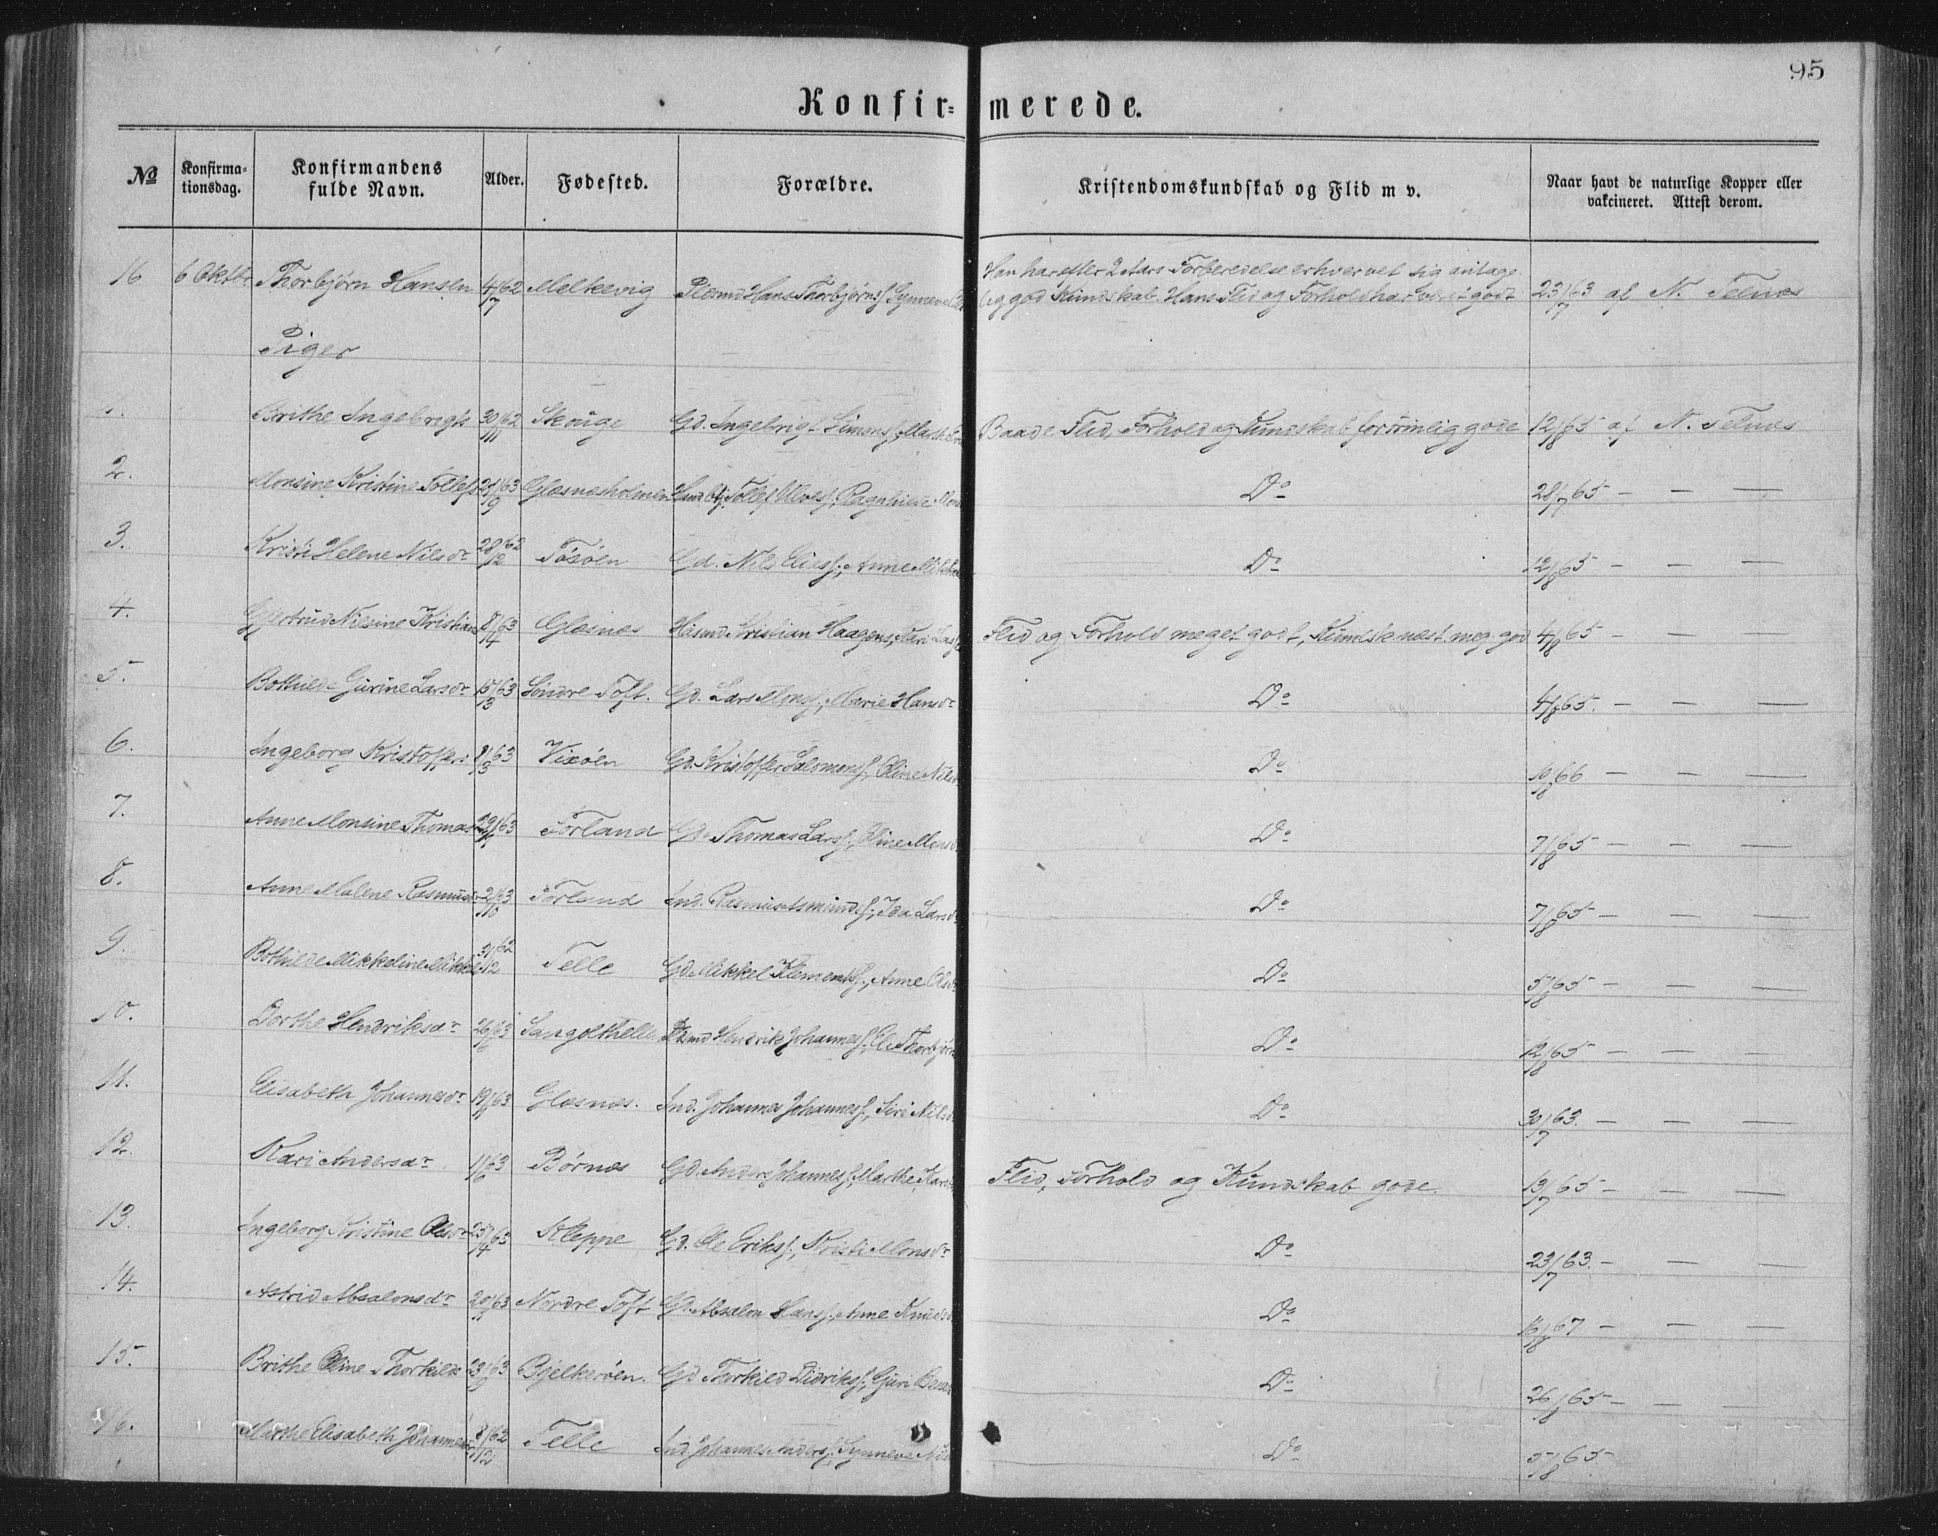 95
Konfir= merede.
No Konfirma= tionsdag. Konfirmandens fulde Navn. Alder. Fødested. Forældre. Kristendomskundskab og Flid m v. Naar havt de naturlige Kopper eller vakcineret. Attest derom.
16 6 Oktbr Thorbjørn Hansen 4/7 62 Melkevig Hans Thorbjørns. Han har efter 2 Aars Forberedelse erhvervet sig antage-
lig god Kundskab. Hans Flid og Forhold har været godt 23/7 63 af N. Telnæs
Piger
1. Brithe Ingebrigts 30/11 62 Skouge Gd. Ingebrigt Simons., Marthe Baade Flid, Forhold og Kundskab fortrinlig gode 12/8 65 af N. Telnæs
2. Monsine Kristine Tollefs 21/9 63 Glæsnæsholmen Tollef Olves., Ragnhilde Mons Do 28/7 65 — — —
3. Kristi Helene Nilsdr 28/12 62 Tösöen Gd. Nils Elias., Anne Do 12/8 65 — — —
4. Gjertrud Nilsine Kristian 8/4 63 Glæsnæs Husmd Kristian Haagens., Kari Lars Flid og Forhold meget godt, Kundsk. næst. meg. god 4/8 65 — — —
5. Bothilde Gurine Larsdr 15/3 63 Söndre Toft. Gd. Lars Mons., Marie Hansdr Do 4/8 65. — — —
6. Ingeborg Kristoffers 8/3 63 Vixöen Gd. Kristoffer Salomons., Oline Nilsd Do 10/8 66 — — —
7. Anne Monsine Thomas 63 Forland Gd. Thomas Lars., Oline Monsd Do 7/8 65 — — —
8. Anne Malene Rasmusdr 63 Forland Ind. Rasmus Asmunds., Ida Larsd Do 7/8 65 — — —
9. Bothilde Mikkeline Mikkels 31/12 62 Telle Gd. Mikkel Klements., Anne Olsd Do 5/8 65 — — —
10. Dorthe Hendriksdr 26/6 63 Sangolthelle Hendrik Johannes., Eli Thorbjørn Do 12/8 65 — — —
11. Elisabeth Johannesdr 19/ 63 Glæsnæs. Ind. Johannes Johannes., Siri Nilsd Do 30/7 63. — — —
12. Kari Andersdr 1/6 63 Börnæs Gd. Anders Johannes., Marthe Flid, Forhold og Kundskab gode. 13/7 65 — — —
13. Ingeborg Kristine Olsdr 25/4 63 Kleppe Gd. Ole Eriks., Kristi Monsdr Do 23/7 63. — — —
14. Astrid Absalonsdr 20/ 63 Nordre Toft Gd. Absalon Hans., Anne Knudsd Do 16/8 67 — — —
15. Brithe Oline Thorkilds 23/9 63 Bjelkeröen. Gd Thorkild Didriks., Guri Do 26/8 65 — — —
16. Marthe Elisabeth Johannes 8/12 62 Telle Ind Johannes Anders., Synneve Do 5/8 65.